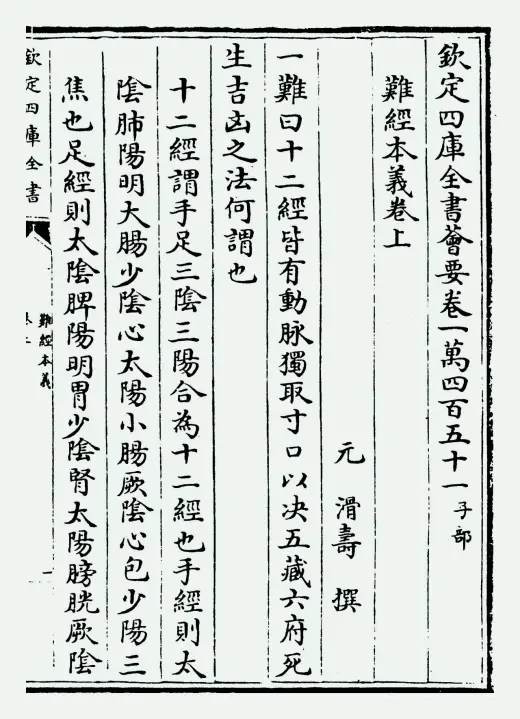 欽定四庫全書薈要卷一萬四百五十一 子部
難經本義卷上
元 滑壽 撰
一難曰十二經皆有動脉獨取寸口以决五藏六府死
生吉凶之法何謂也
十二經謂手足三陰三陽合為十二經也手經則太
陰肺陽明大腸少陰心太陽小腸厥陰心包少陽三
焦也足經則太陰脾陽明胃少陰腎太陽膀胱厥陰
欽定四庫全書
難經本義
一